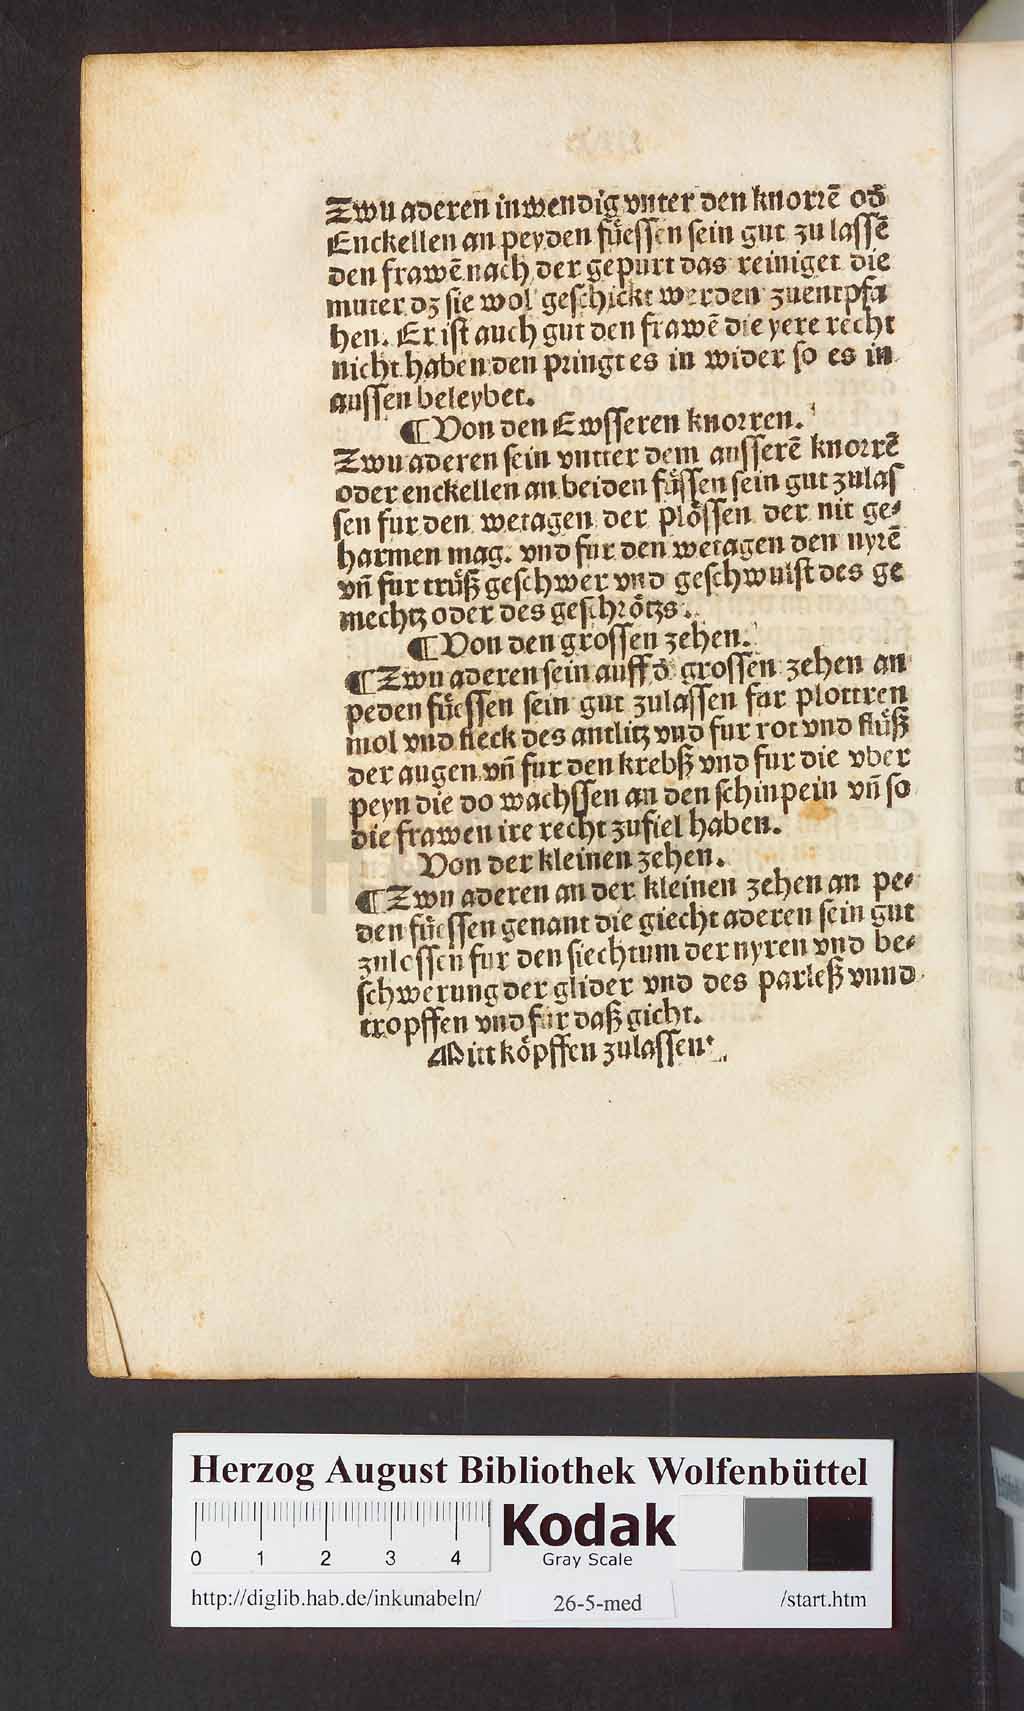 Zwu aderen inwendig vnter den knorrē od̄
Enckellen an peyden fuͤessen sein gut zu lassē
den frawē nach der gepurt das reiniget die
muter dz sie wol geschickt werden zuentpfa
hen. Er ist auch gut den frawē die yere recht
nicht haben den pringt es in wider so es in
aussen beleybet.
¶ Von den Ewsseren knorren.
Zwu aderen sein vntter dem ausserē knorrē
oder enckellen an beiden fuͤssen sein gut zulas
sen fur den wetagen der ploͤssen der nit ge⸗
harmen mag. vnd fur den wetagen den nyrē
vn̄ fur truͤß geschwer vnd geschwulst des ge
mechtz oder des geschroͤtzs.
¶ Von den grossen zehen.
¶ Zwu aderen sein auff d̄ grossen zehen an
peden fuͤessen sein gut zulassen fur plottren
mol vnd fleck des antlitz vnd fur rot vnd fluͤß
der augen vn̄ fur den krebß vnd fur die vber
peyn die do wachssen an den schinpein vn̄ so
die frawen ire recht zufiel haben.
Von der kleinen zehen.
¶ Zwu aderen an der kleinen zehen an pe⸗
den fuͤessen genant die giecht aderen sein gut
zulossen fur den siechtum der nyren vnd be⸗
schwerung der glider vnd des parleß vnnd
tropffen vnd fur daß gicht.
Mitt koͤpffen zulassen.
Herzog August Bibliothek Wolfenbüttel
0 1 2 3 4
Kodak
Gray Scale
http://diglib.hab.de/inkunabeln/ 26-5-med /start.htm